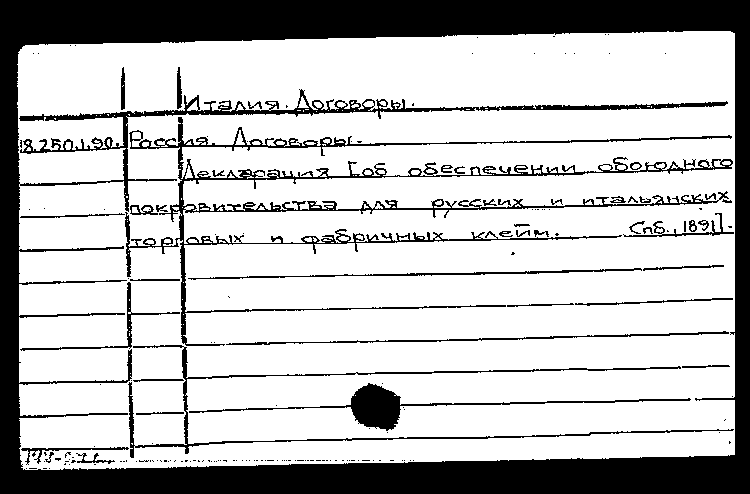 Италия. Договоры.
18.250.1.90. Россия. Договоры.
Декларация [об обеспечении обоюдного
покровительства для русских и итальянских
торговых и фабричных клейм. Спб., 1891].